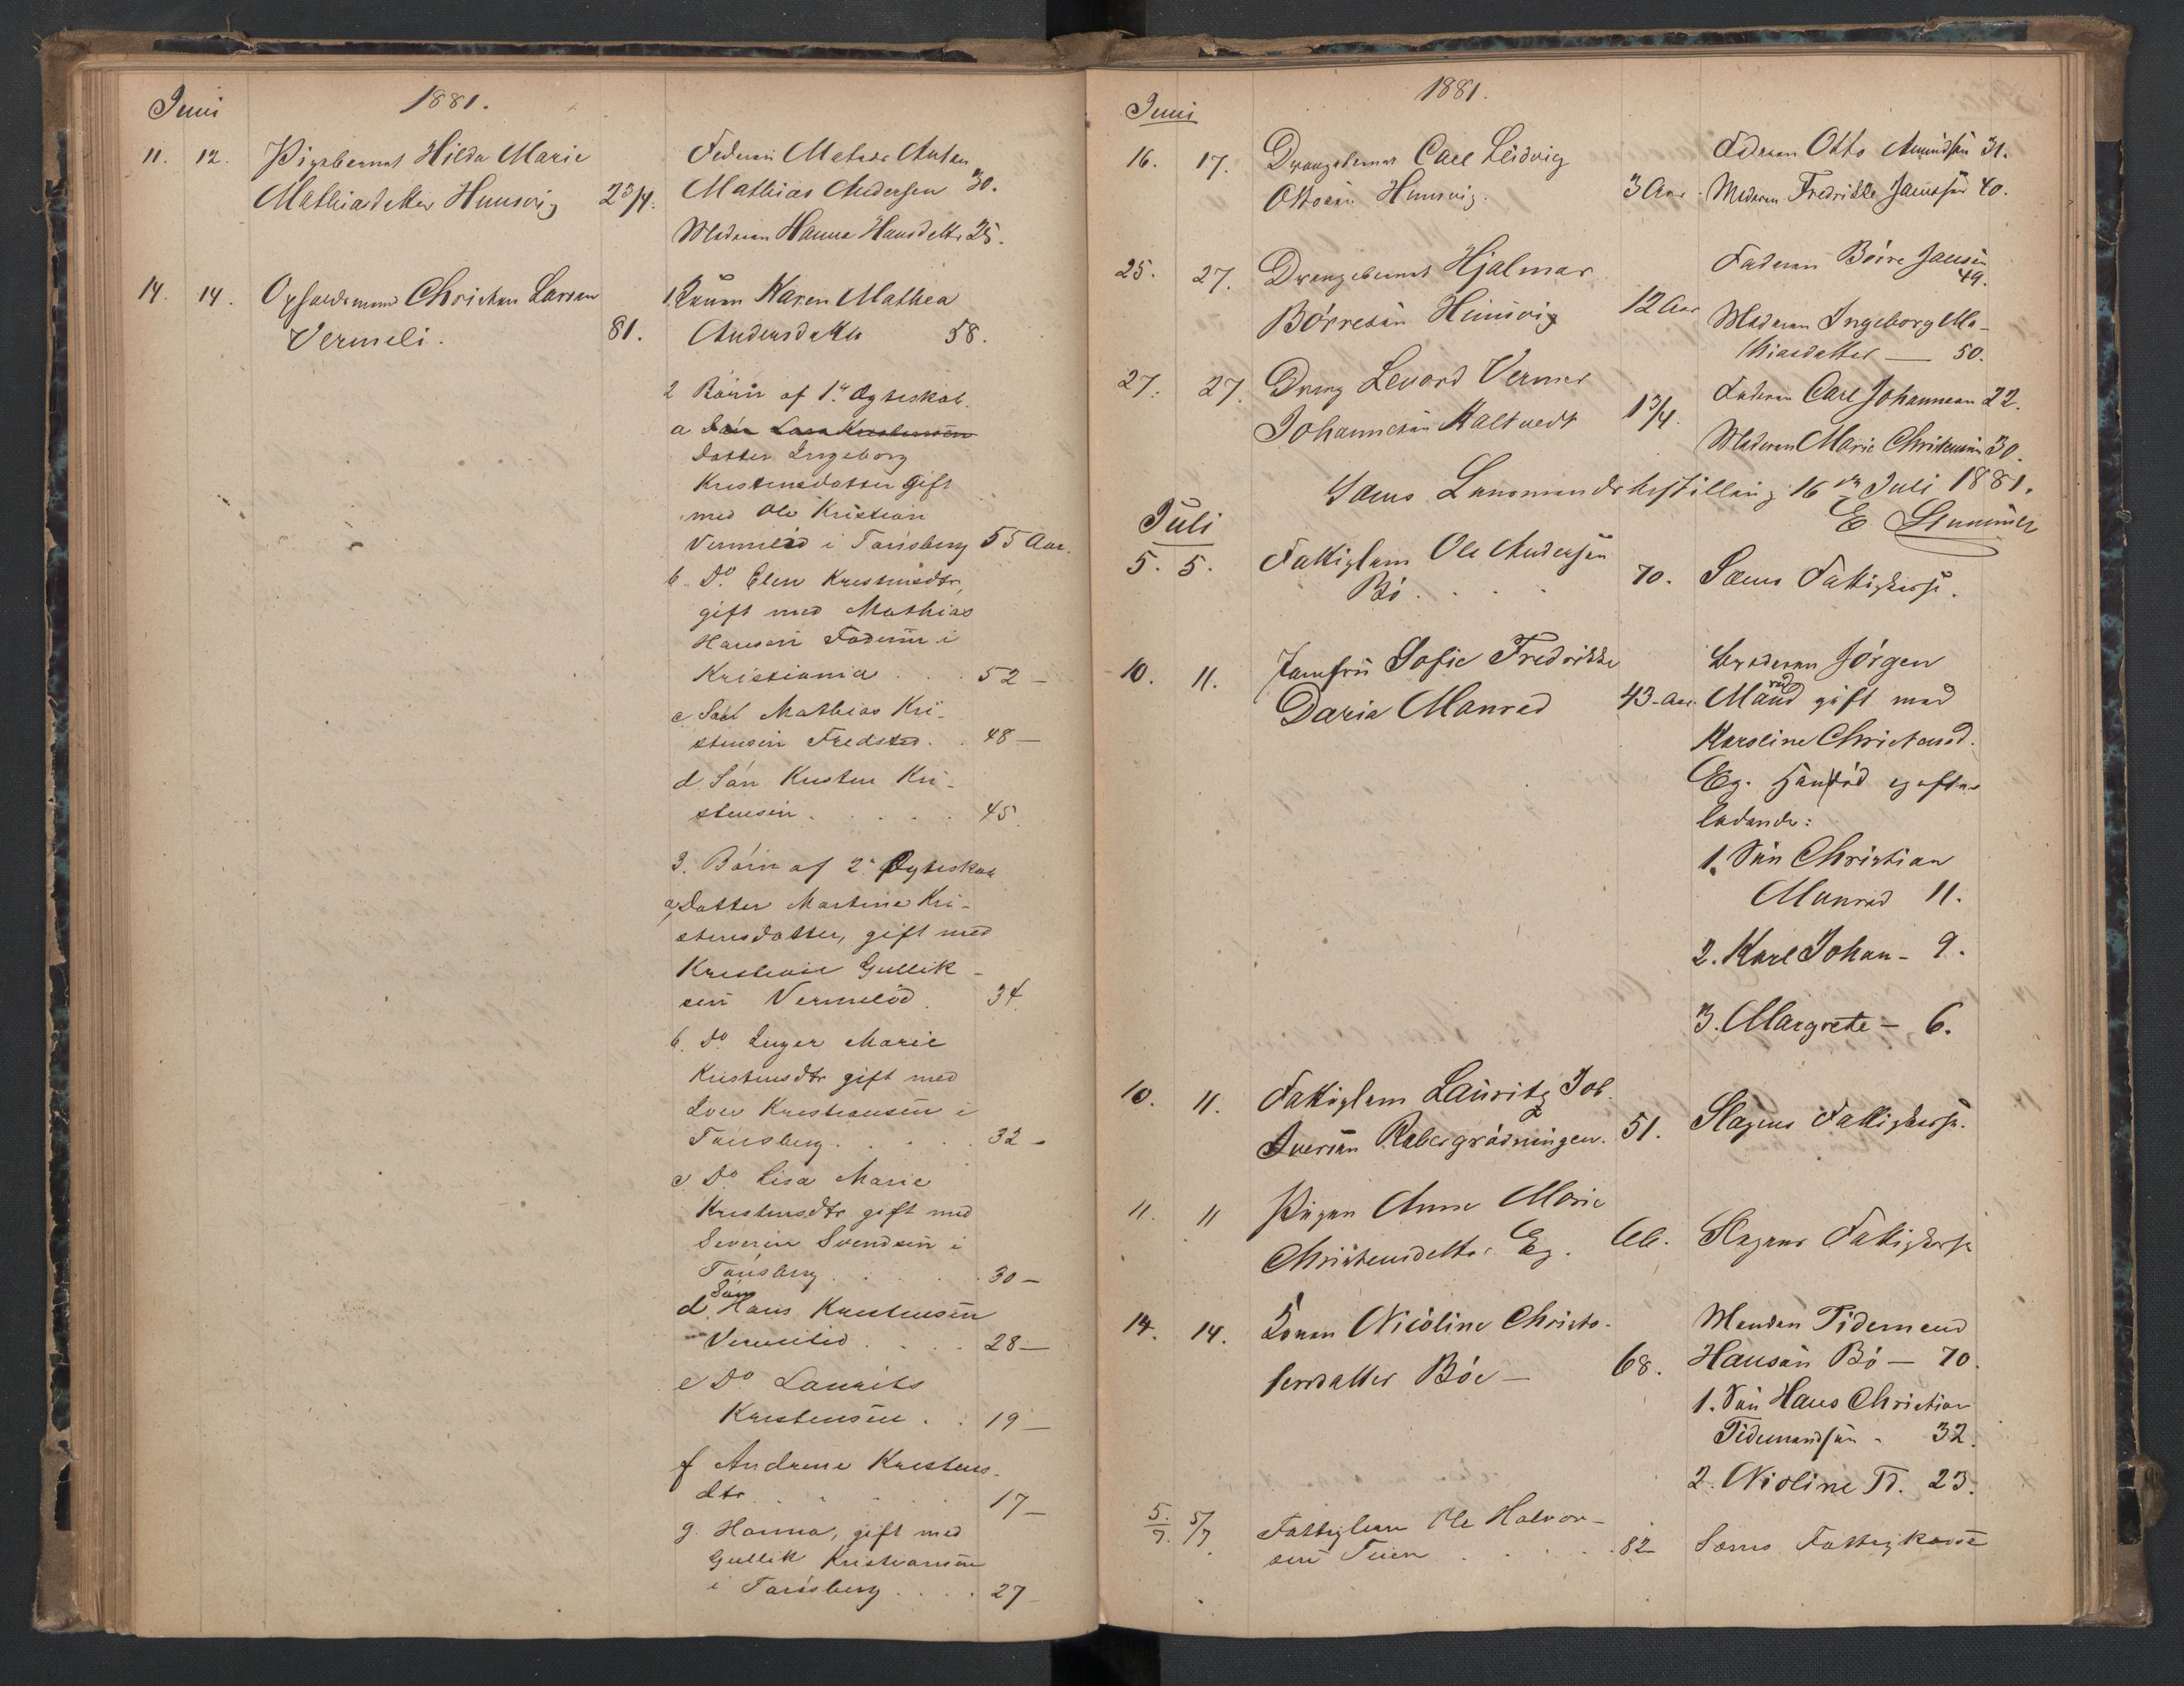 Juni 1881.
11. 12. Pigebarnet Hilda Marie
Mathiasdatter Husvig 2 3/4.
Faderen
Mathias Andersen 30.
Moderen Hanna Hansdatter 25.
14. 14. Opholdsmand Christen Larsen
Vermeli. 81.
1. Konen Karen Mathea
Andersdatter 58.
2 Børn af 1ste Ægteskab.
a
Datter Ingeborg
Kristensdatter gift
med Ole Kristian
i Tønsberg 55 Aar.
b. Do. Elen Kristensdtr,
gift med Mathias
Hansen i
Kristiania . . . 52 –
c. Søn Mathias Kri-
stensen . . 48 –
d. Søn Kristen Kri-
stensen . . . . . 45
3. Børn af 2det Ægteskab
a, Datter Martine Kri-
stensdatter, gift med
Kristian Gullik-
sen Vermelid . 34
b. Do. Inger Marie
Kristensdtr gift med
Iver Kristiansen i
Tønsberg . . . . . 32 –
c. Do. Lisa Marie
Kristensdtr gift med
Severin Svendsen i
Tønsberg . . . . . 30 –
Søn
d. Hans Kristensen
Vermelid . . . . 28 –
e Do Laurits
Kristensen . . 19 –
f Andrine Kristens-
dtr . . . . . 17 –
g. Hanna, gift med
Gullik Kristiansen
i Tønsberg . . . . 27 –
1881.
Juni
16. 17. Drengebarnet Carl Ludvig
Ottosen Husvig. 3 Aar.
Faderen Otto Amundsen 31.
Moderen Fredrikke Jansen 40.
25. 27. Drengebarnet Hjalmar
Børresen Husvig 12 Aar
Faderen Børre Jansen
49.
Moderen Ingeborg Ma-
thiasdatter — 50.
27. 27. Dreng Leonard Verner
Johannesen Kaltvedt 1 3/4.
Faderen Carl Johannesen 22.
Moderen Marie Christensen 30.
Sems Lensmandsbestilling 16de Juli 1881.
E
Juli
5. 5. Fattiglem Ole Andersen
Bø . . . . 70. Sems Fattigkasse.
10. 11. Jomfru Sofie Fredrikke
Daria Manred 43 Aar.
Broderen Jørgen
Manred gift med
Karoline Christensd.
Eg.
ladende:
1. Søn Christian
Manred 11.
2. Karl Johan – 9.
3. Margrete – 6.
10. 11. Fattiglem Lauritz Job.
Iversen 51. Slagens Fattigkasse.
11. 11 Pigen Anne Marie
Christensdatter Eg. 66. Slagens Fattigkasse
14. 14. Konen Nicoline Christo-
fersdatter Bøe – 68.
Manden Tidemand
Hansen Bø — 70.
1. Søn Hans Christian
Tidemandsen - 32.
2. Nicoline Td. 23.
5/7. 5/7. Fattiglem Ole Halvor-
sen Teien . . . . 82 – Sems Fattigkasse